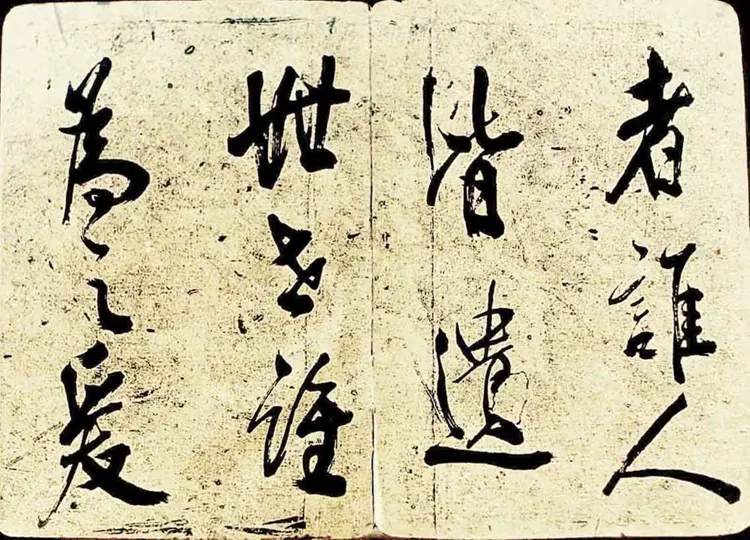 者誰人
皆遺
世老誰
為之爰